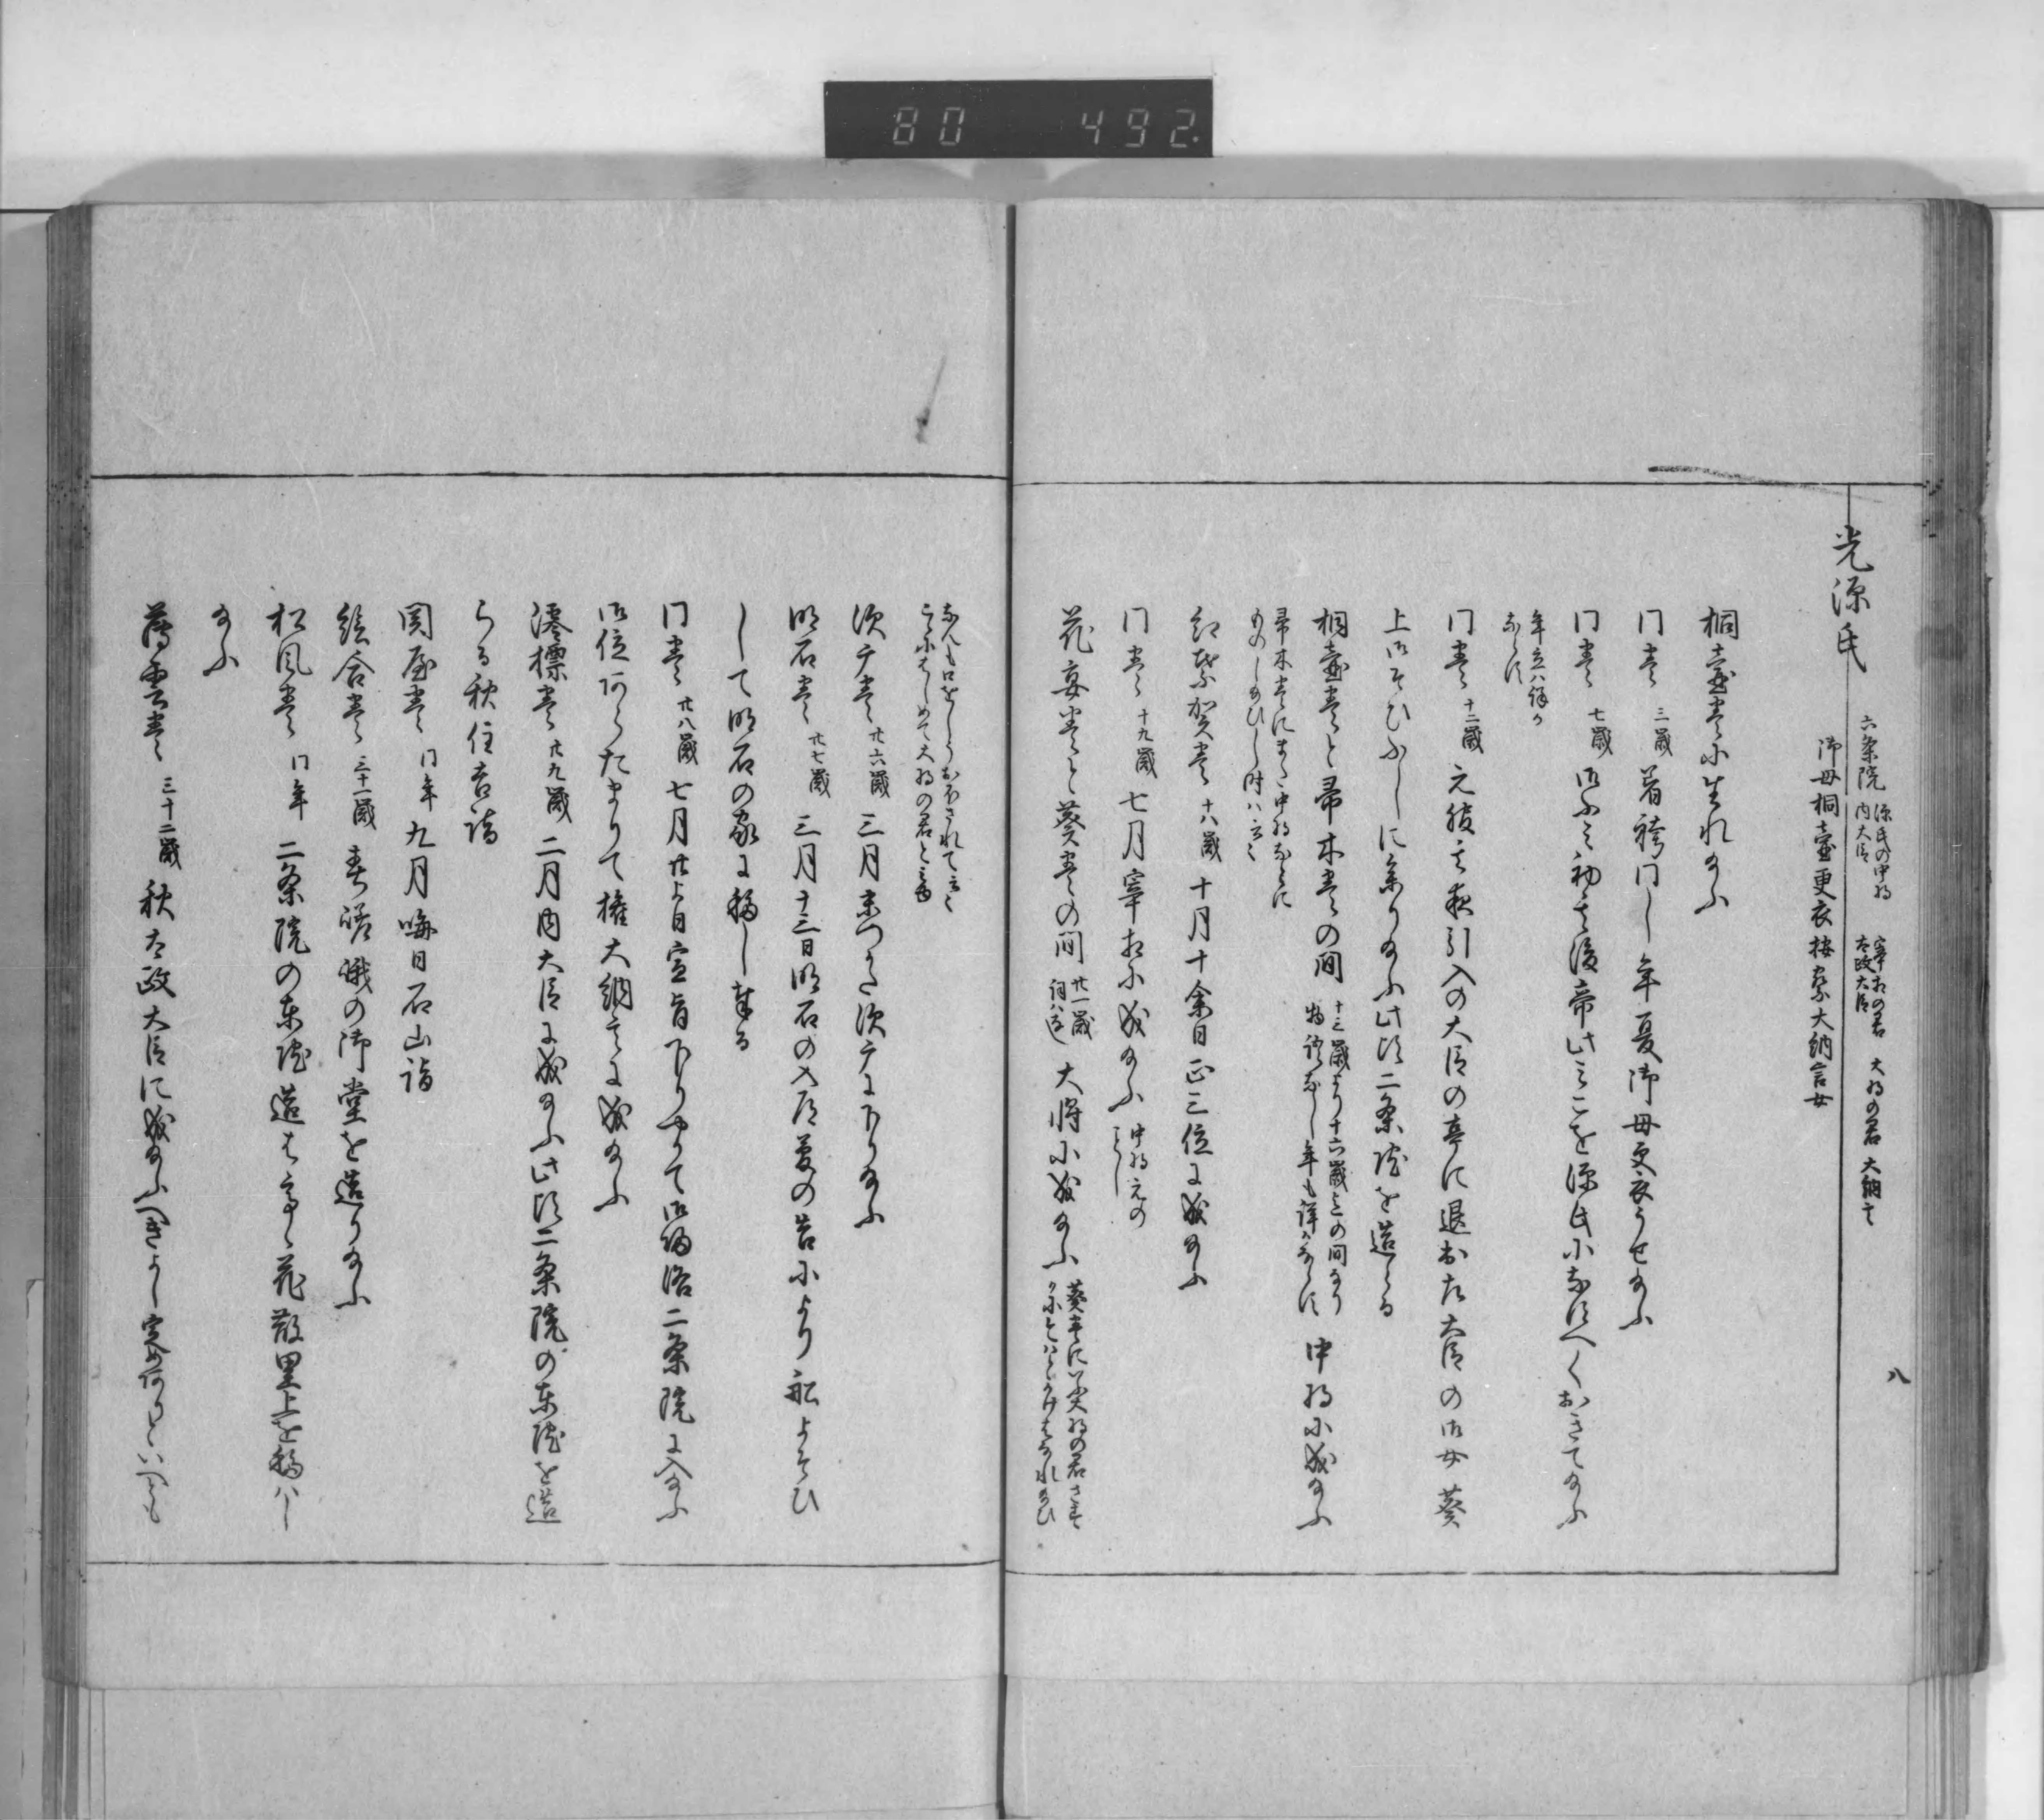 80 492.
八
光源氏
六条院 源氏の中将 内大臣 宰相の君 太政大臣 大将の君 大納言
御母桐壺更衣按察大納言女
桐壺巻に生れ給ふ
同巻 三歳 着袴同し年夏御母更衣うせ給ふ
同巻 七歳 御ふみ初其後帝此みこを源氏になすへくおきて給ふ
年立ハ
ならす
同巻 十二歳 元服其夜引入の大臣の亭に退出左大臣の御女葵
上御そひふしに参り給ふ此頃二条院を造らる
桐壺巻と帚木巻の間 十三歳より十六歳まての間なり 物語なし年も詳ならす 中将に成給ふ
帚木巻にまた中将なとに
ものし給ひし時ハと云々
紅葉賀巻 十八歳 十月十余日正三位に成給ふ
同巻 十九歳 七月宰相に成給ふ 中将元の ことし
花宴巻と葵巻の間 廿一歳 大将に成給ふ
須广巻 廿六歳 三月末つかた須广に下り給ふ
明石巻 廿七歳 三月十三日明石の入道夢の告により船よそひ
して明石の家に移し奉る
同巻 廿八歳 七月廿よ日宣旨下りやかて御帰洛二条院に入給ふ
御位あらたまりて権大納言に成給ふ
澪標巻 廿九歳 二月内大臣に成給ふ此頃二条院の東院を造
らる秋住吉詣
関屋巻 同年 九月晦日石山詣
絵合巻 三十一歳 春嵯峨の御堂を造り給ふ
松風巻 同年 二条院の東院造はてゝ花散里上を移ハし
給ふ
薄雲巻 三十二歳 秋太政大臣に成給ふへきよし定めありといへとも